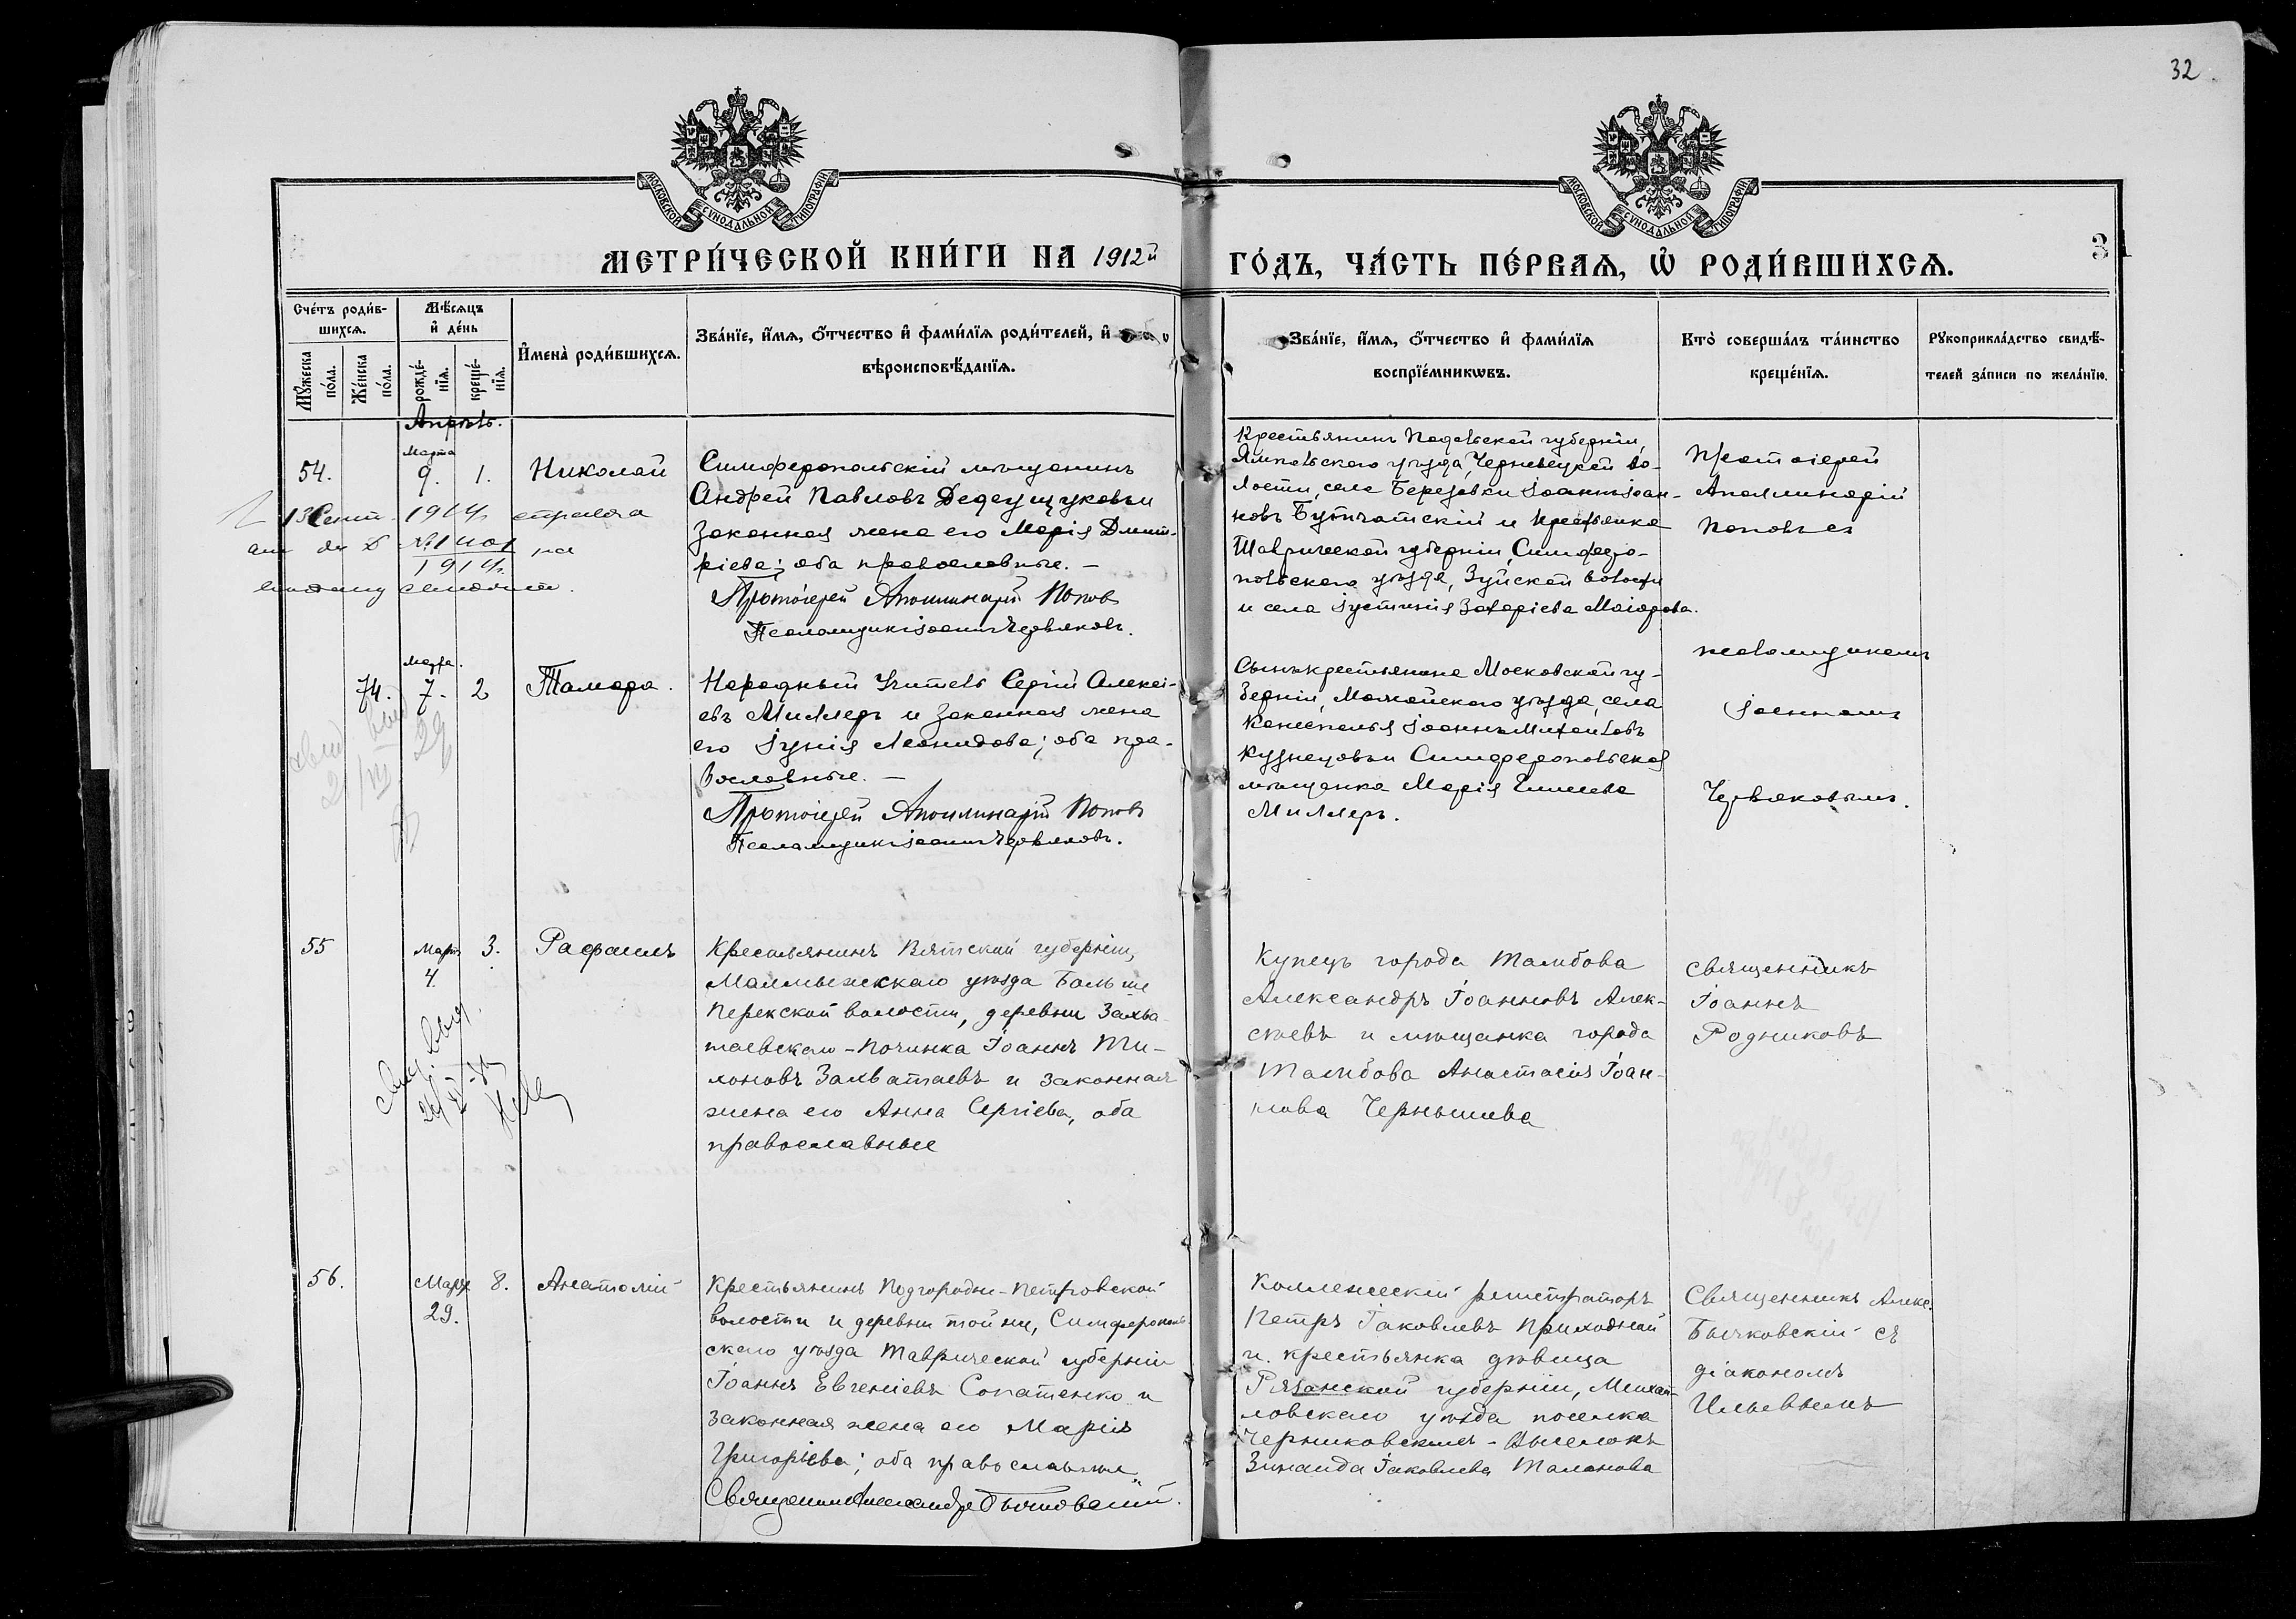 32
МОСКОВСКОЙ СѴНОДАЛЬНОЙ ТИПОГРАФІИ
МОСКОВСКОЙ СѴНОДАЛЬНОЙ ТИПОГРАФІИ
МЕТРИ́ЧЕСКОЙ КНИ́ГИ НА 1912й
ГО́ДЪ, ЧА́СТЬ ПЕ́РВАЯ, Ѡ҆ РОДИ́ВШИХСЯ.
31
Сче́тъ роди́в-
шихсѧ.
Мѣ́сѧцъ
и҆ де́нь
Мꙋ́жеска
по́ла.
Же́нска
по́ла.
рожде́-
нїѧ.
креще́-
нїѧ.
И҆мена̀ роди́вшихсѧ.
Зва́нїе, и҆́мѧ, ѻ҆́тчество и҆ фами́лїѧ роди́телей, и҆
вѣроисповѣ́данїѧ.
Зва́нїе, и҆́мѧ, ѻ҆́тчество и҆ фами́лїѧ
воспрїе́мникѡвъ.
Кто̀ соверша́лъ та́инство
креще́нїѧ.
Рꙋкоприкла́дство свидѣ́-
телей за́писи по жела́нїю.
Апрѣль.
54.
Марта
9.
1.
Николай
Симферопольскій мѣщанинъ
Андрей Павловъ
Законная жена его Марія Дмит-
ріева; оба православные. —
Протоіерей Аполлинарій Попов
Псаломщикъ Іоаннъ Червяковъ.
13 Сент. 1914
№
1914
Крестьянинъ Подольской губерніи,
Ямпольскаго уѣзда, Чернѣвецкой во-
лости, села Березовки Іоаннъ Іоан-
новъ и крестьянка
Таврической губерніи, Симферо-
польскаго уѣзда, Зуйской волости
и села Іустинія Захаріева Маіорова.
Протоіерей
Аполлинарій
Поповъ съ
74.
Марта.
7.
2
Тамара.
Народный Учитель Сергій Алексі-
евъ Миллеръ и Законная жена
его Іунія Леонидова; оба пра-
вославные. —
Протоіерей Аполлинарій Поповъ
Псаломщикъ Іоаннъ Червяковъ.
Сынъ крестьянина Московской гу-
берніи, Можайскаго уѣзда, села
Іоаннъ Михаиловъ
Кузнецовъ и Симферопольская
мѣщанка Марія
Миллеръ.
псаломщикомъ
Іоанномъ
Червяковымъ.
55
Март
4.
3.
Рафаилъ
Крестьянинъ Вятской губерніи,
Малмыжскаго уѣзда Больше
Перекской волости, деревни Захва-
таевскаго-Починка Іоаннъ Ти-
хоновъ Захватаевъ и законная
жена его Анна Сергіева, оба
православные
Купецъ города Тамбова
Александръ Іоанновъ Алек-
сѣевъ и мѣщанка города
Тамбова Анастасія Іоан-
нова Чернышева
Священникъ
Іоаннъ
Родниковъ
56.
Марта
29.
8.
Анатолій
Крестьянинъ Подгородне-Петровской
волости и деревни той-же, Симферополь-
скаго уѣзда Таврической губерніи
Іоаннъ Евгеніевъ Сопатенко и
законная жена его Марія
Григорьева; оба православные
Священникъ Александръ Бычковскій.
Коллежскій регистраторъ
Петръ Іаковлевъ Приходной
и крестьянка дѣвица
Рязанской губерніи, Михай-
ловскаго уѣзда поселка
Зинаида Іаковлева Таланова
Священникъ Алекс.
Бычковскій съ
діакономъ
Ильевымъ